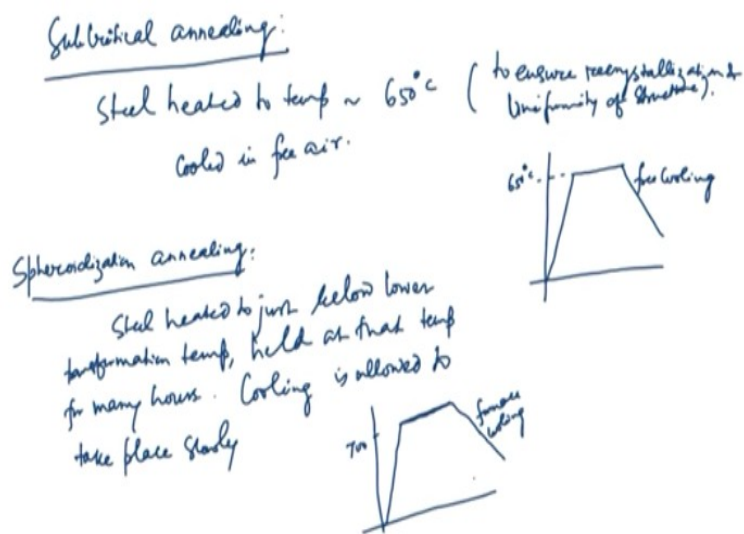 Subcritical annealing:
Steel heated to temp ~ 650°C (to ensure recrystallization &
Uniformity of structure).
Cooled in free air.
650°C
free cooling
Spheroidization annealing:
Steel heated to just below lower
transformation temp, held at that temp
for many hours. Cooling is allowed to
take place slowly
700
furnace
cooling